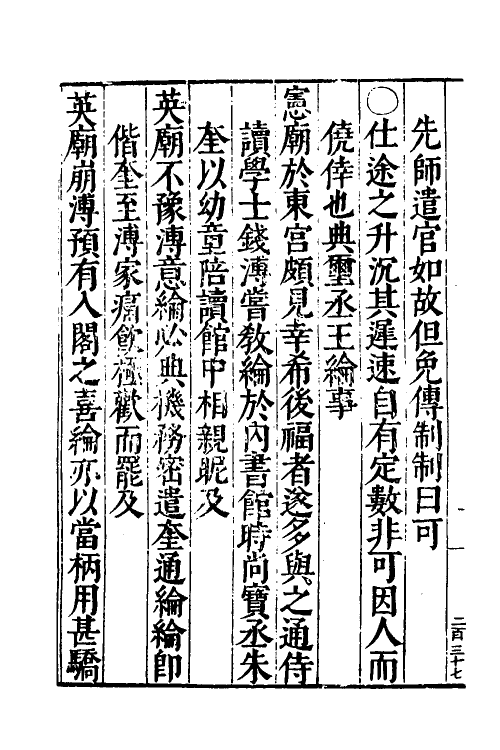 先師遣官如故但免傳制制曰可
○仕途之升沉其遲速自有定數非可因人而
僥倖也典璽丞王綸事
憲廟於東宮頗見幸希後福者遂多與之通侍
讀學士錢溥嘗敎綸於內書館時尚寶丞朱
奎以幼童陪讀館中相親昵及
英廟不豫溥意綸必典機務密遣奎通綸綸卽
偕奎至溥家痛飲極歡而罷及
英廟崩溥預有入閣之喜綸亦以當柄用甚驕
二百三十七